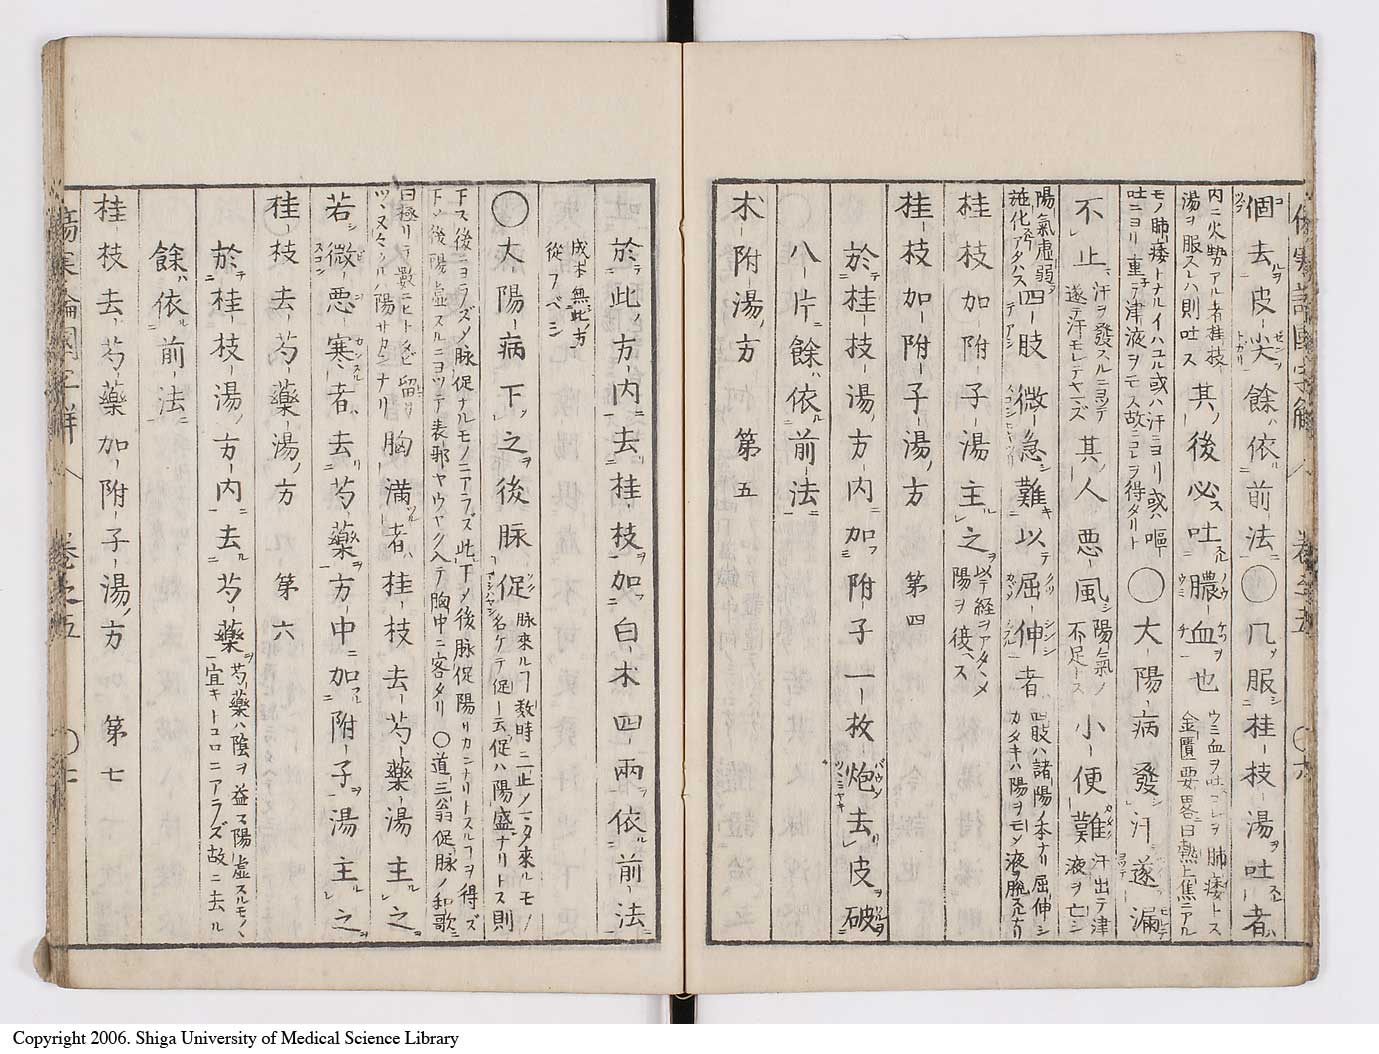 個去皮尖餘依前法〇凡服桂枝湯吐者
内ニ火勢アル者桂枝
湯ヲ服スルハ則吐ス
其後必吐膿血也
ウミ血ヲ吐コレヲ肺痿トス
金匱要畧曰熱上焦ニアル
モノ肺痿トナルイハユル或ハ汗ニヨリ或ハ嘔
吐ニヨリ重テ津液ヲモス故ニコレヲ得タリト
〇大陽病發汗遂漏
不止
汗ヲ發スルニヨツテ
遂テ汗モレテヤマズ
其人悪風
陽氣ノ
不足トス
小便難
汗出テ津
液ヲ亡シ
陽氣虚弱
施化アタハス
四肢微急難以屈伸者
四肢ハ諸陽ノ本ナリ屈伸シ
カタキハ陽ヲモソ液ヲ脱スルナリ
桂枝加附子湯主之
經ヲアタヽメ
陽ヲ復ス
桂枝加附子湯方 第四
於桂枝湯方内加附子一枚炮去皮破
八片餘依前法
朮附湯方 第五
傷寒論國字解 巻之五 〇六
於此方内去桂枝加白朮四兩依前法
成本無此方
從フベシ
〇大陽病下之後脉促
脉來ルコト数時ニ一止ノマタ來ルモノ
名ケテ促ト云促ハ陽盛ナリトス則
下ス後ニヨラズノ脉促ナルモノニアラズ此下ノ後脉促陽リカンナリトスルコヲ得ズ
下ソ後陽虚スルニヨツテ表邪ヤウヤク入テ胸中ニ客タリ 〇道三翁促脉ノ和歌ニ
曰極リテ數ニヒトタビ留リ
ツヽ又々クルハ陽サカンナリ
胸満者桂枝去芍藥湯主之
若微悪寒者去芍藥方中加附子湯主之
桂枝去芍藥湯方 第六
於桂枝湯方内去芍藥
芍藥ハ陰ヲ益ス陽虚スルモノヽ
宜キトコロニアラズ故ニ去ル
餘依前法
桂枝去芍藥加附子湯方 第七
傷寒論國字解 巻之五 〇七
Copyright 2006. Shiga University of Medical Science Library